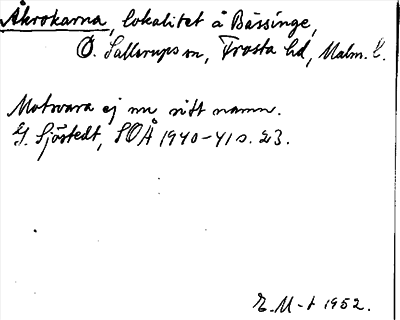 Åkrokarna, lokalitet å Bässinge,
Ö. Sallerups sn, Frosta hd, Malm. l.
Motsvara ej nu sitt namn.
G. Sjöstedt, SOÅ 1940-41 s. 23.
E. M-t 1952.